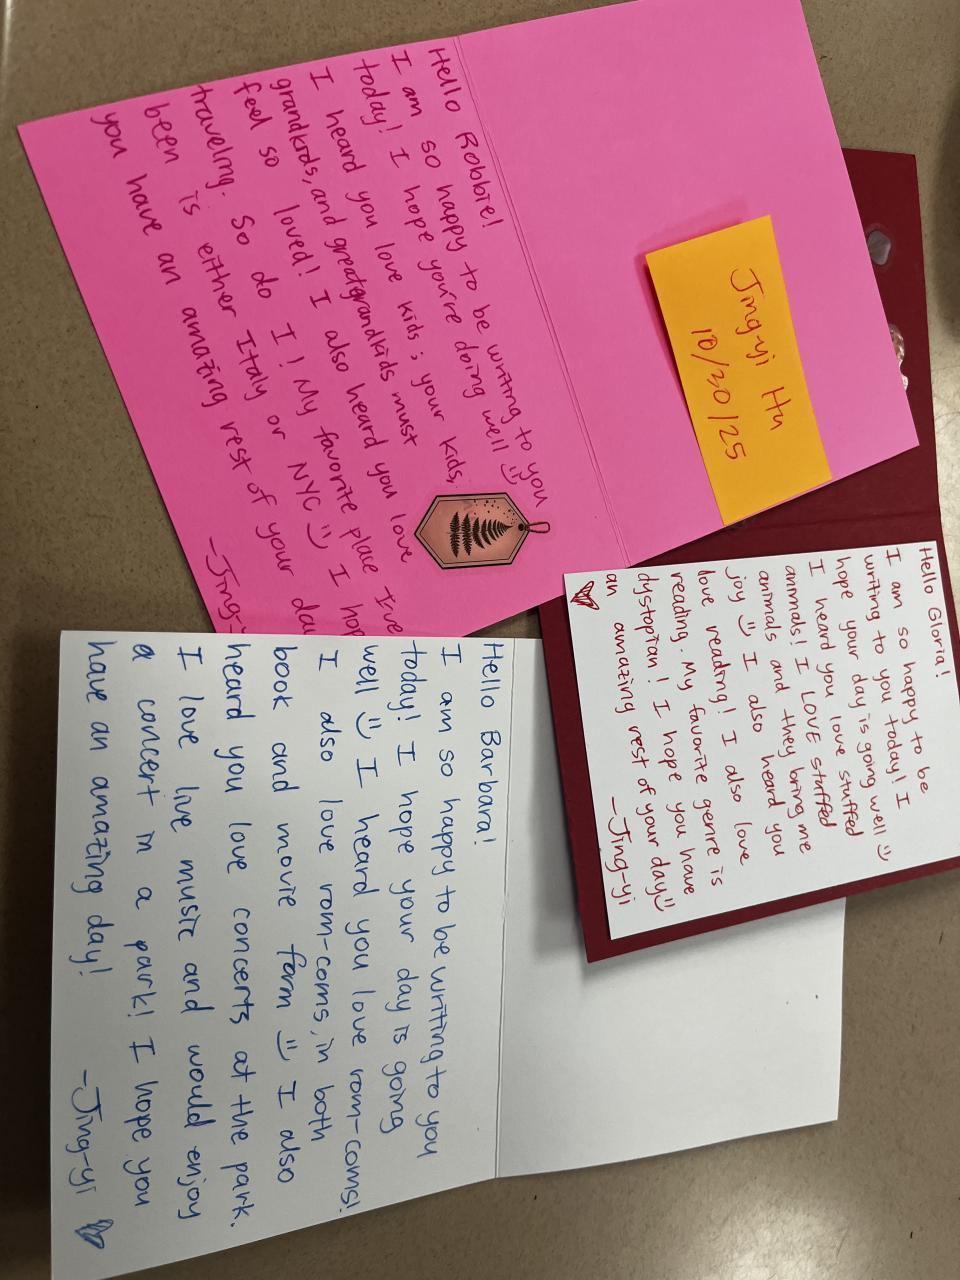 Hello Robbie!
I am so happy to be writing to you
today! I hope you're doing well :)
I heard you love kids; your kids,
grandkids, and greatgrandkids must
feel so loved! I also heard you love
traveling. So do I! My favorite place I've
been is either Italy or NYC :) I hop
you have an amazing rest of your da
-Jing-y
Jing-yi Hu
10/30/25
Hello Gloria!
I am so happy to be
writing to you today! I
hope your day is going well :)
I heard you love stuffed
animals! I LOVE stuffed
animals and they bring me
joy :) I also heard you
love reading! I also love
reading. My favorite genre is
dystopian! I hope you have
an amazing rest of your day :)
-Jing-yi
Hello Barbara!
I am so happy to be writing to you
today! I hope your day is going
well :) I heard you love rom-coms!
I also love rom-coms, in both
book and movie form :) I also
heard you love concerts at the park.
I love live music and would enjoy
a concert in a park! I hope you
have an amazing day!
-Jing-yi